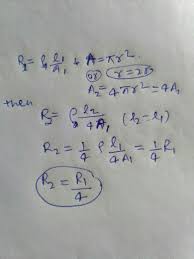 R₂ = ρ l₁/A₁ & A = πr²
or r = 2r
A₂ = 4πr² = 4A₁
then
R₂ = ρ l₂/4A₁ (l₂ = l₁)
R₂ = 1/4 ρ l₁/4A₁ = 1/4 R₁
R₂ = R₁/4